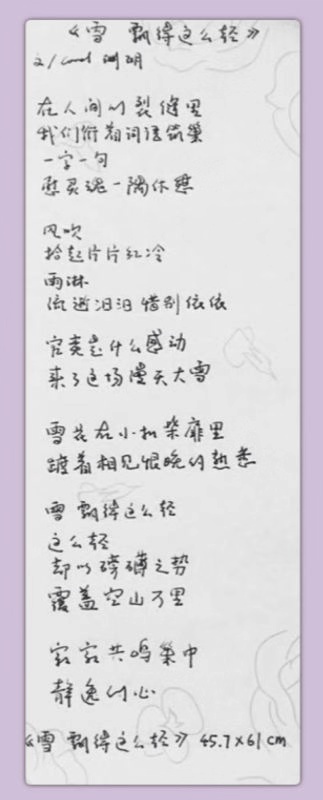 《雪 飘得这么轻》
文/Carol 渊明
在人间的裂缝里
我们衔着词语筑巢
一字一句
慰灵魂一隅休憩
风吹
拾起片片红冷
雨淋
流逝汩汩惜别依依
究竟是什么感动
来了这场漫天大雪
雪装在小扣柴扉里
踱着相见恨晚的熟悉
雪 飘得这么轻
这么轻
却以磅礴之势
覆盖空山万里
寂寂共鸣巢中
静逸的心
《雪 飘得这么轻》 45.7×61cm